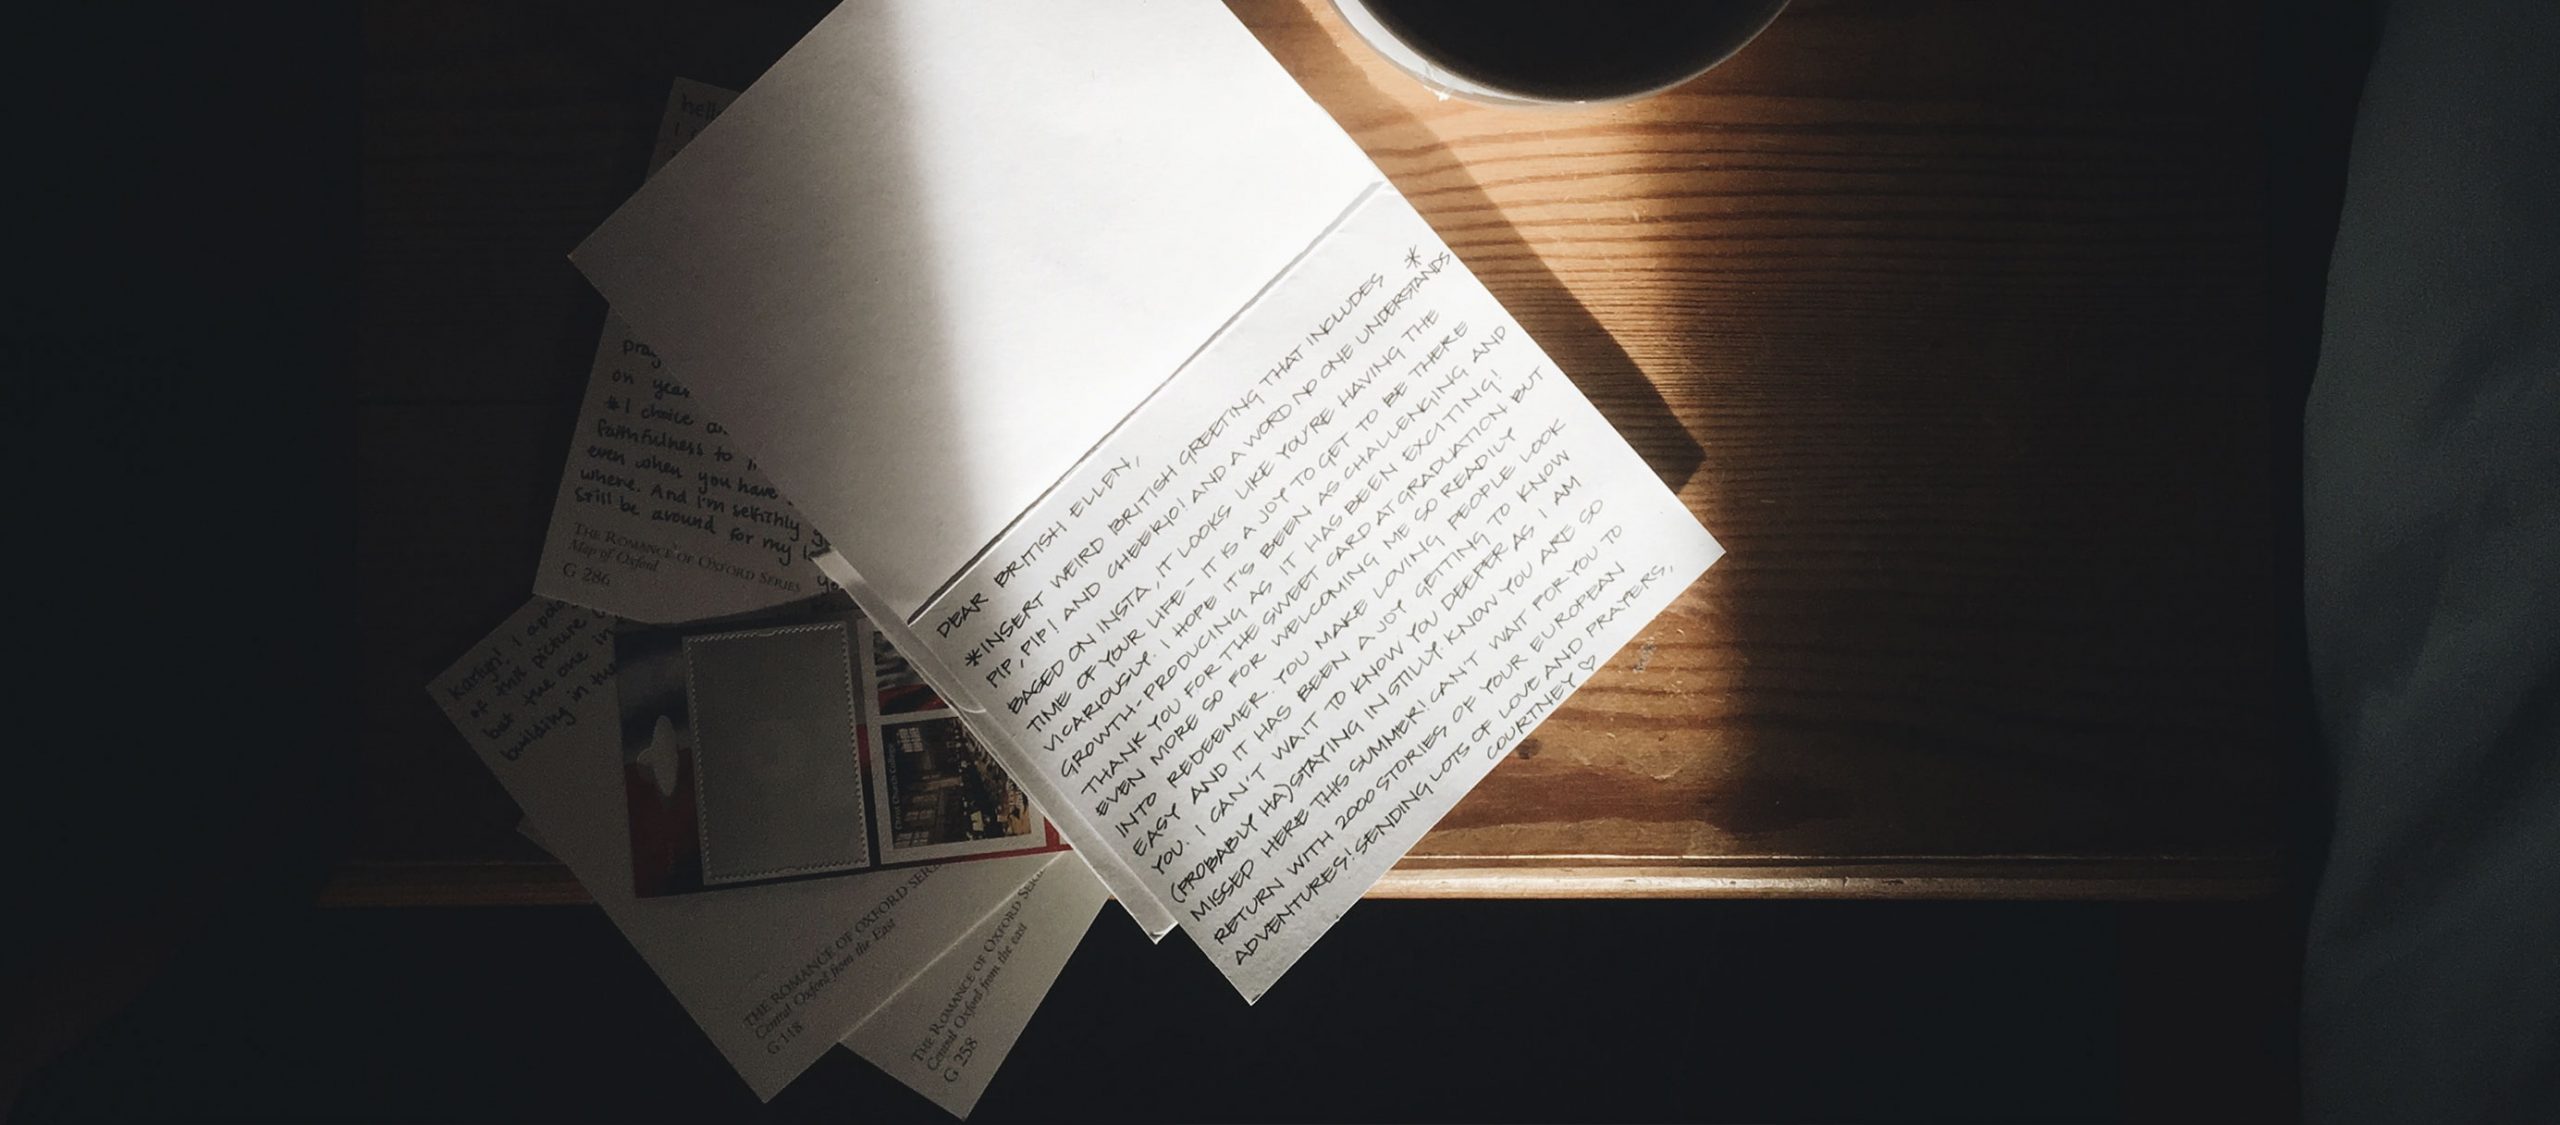 DEAR BRITISH ELLEN,
*INSERT WEIRD BRITISH GREETING THAT INCLUDES *
PIP, PIP! AND CHEERIO! AND A WORD NO ONE UNDERSTANDS
BASED ON INSTA, IT LOOKS LIKE YOU'RE HAVING THE
TIME OF YOUR LIFE - IT IS A JOY TO GET TO BE THERE
VICARIOUSLY. I HOPE IT'S BEEN AS CHALLENGING AND
GROWTH-PRODUCING AS IT HAS BEEN EXCITING!
THANK YOU FOR THE SWEET CARD AT GRADUATION BUT
EVEN MORE SO FOR WELCOMING ME SO READILY
INTO REDEEMER. YOU MAKE LOVING PEOPLE LOOK
EASY AND IT HAS BEEN A JOY GETTING TO KNOW
YOU. I CAN'T WAIT TO KNOW YOU DEEPER AS I AM
(PROBABLY HA) STAYING IN STILLY. KNOW YOU ARE SO
MISSED HERE THIS SUMMER! CAN'T WAIT FOR YOU TO
RETURN WITH 2000 STORIES OF YOUR EUROPEAN
ADVENTURES! SENDING LOTS OF LOVE AND PRAYERS,
COURTNEY ♡
on year
#1 choice
faithfulness to
even when you have
where. And I'm selfithly
still be around for my
THE ROMANCE OF OXFORD SERIES
Map of Oxford
G 286
Karlyn! I
of this picture
but the one in
building in the
THE ROMANCE OF OXFORD
Central Oxford from the East
G 118
THE ROMANCE OF OXFORD
Central Oxford from the east
G 258